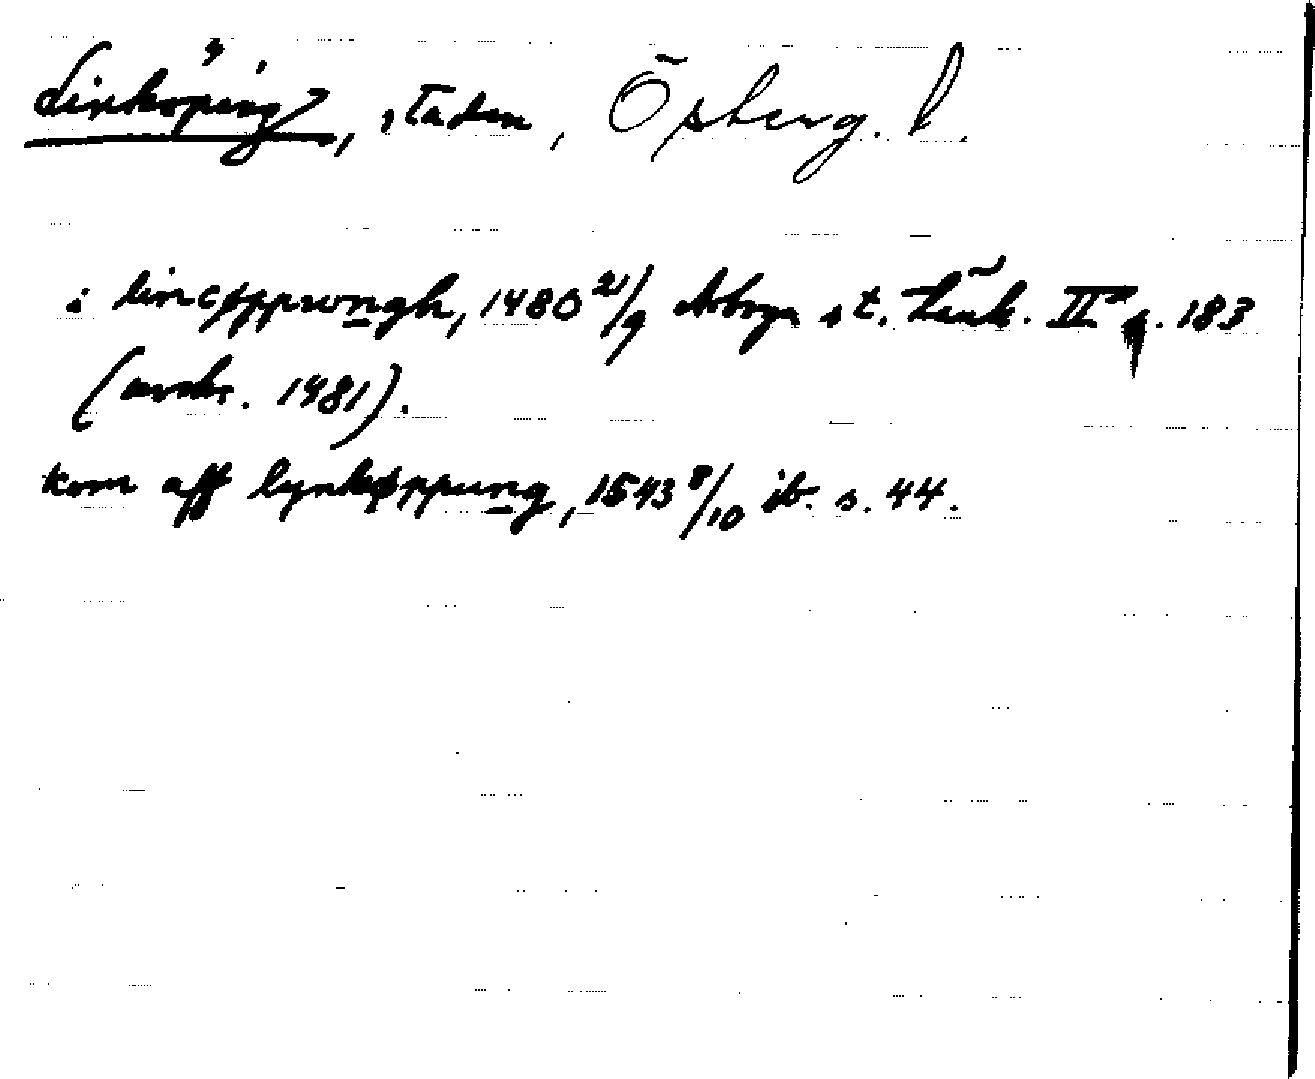 Linköping, staden, Östergs. l.
i lincøppwngh, 1480 21/9 Arboga st. tänk. II s. 183
(avskr. 1481).
kom aff lynkøppung, 1543 8/10 ib. s. 44.